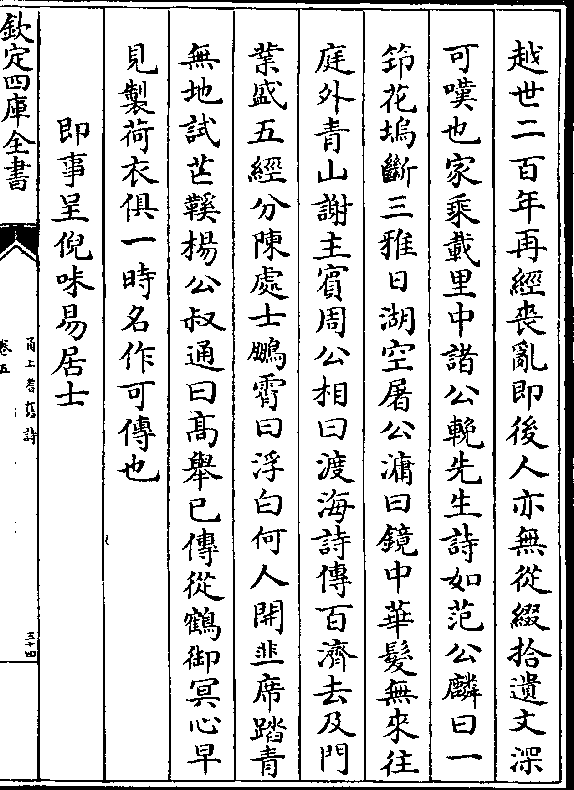 越世二百年再經喪亂即後人亦無從綴拾遺文深
可嘆也家乘載里中諸公輓先生詩如范公麟曰一
笻花塢斷三雅日湖空屠公滽曰鏡中華髮無來往
庭外青山謝主賓周公相曰渡海詩傳百濟去及門
業盛五經分陳處士鵬霄曰浮白何人開韭席踏青
無地試芒鞵楊公叔通曰高舉已傳從鶴御冥心早
見製荷衣俱一時名作可傳也
即事呈倪味易居士
欽定四庫全書
甬上耆舊詩
卷五
三十四